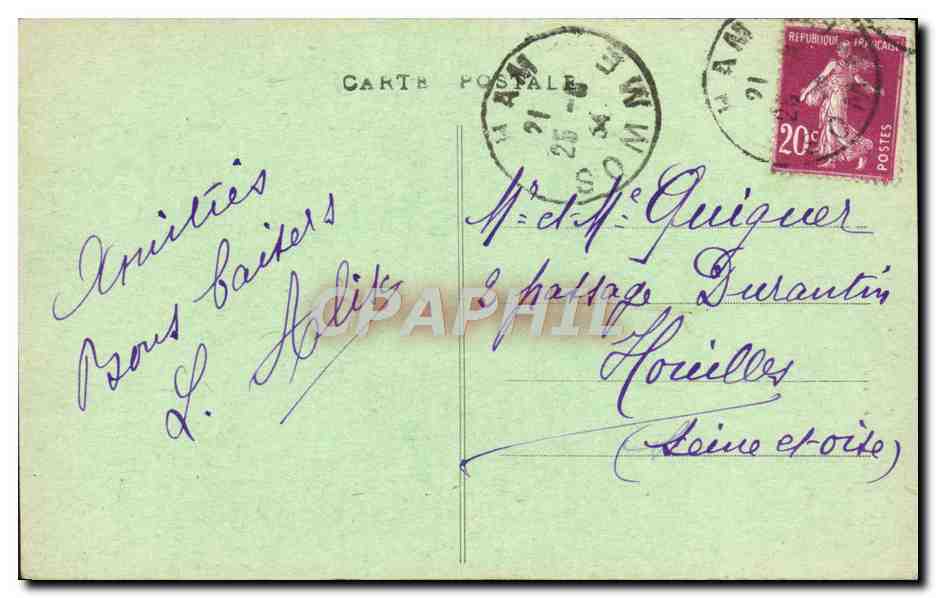 CARTE POSTALE
HAM
21
25 -8
34
SOMME
HAM
21
SOMME
REPUBLIQUE FRANÇAISE
20c
POSTES
Amitiés
Bons baisers
L. Alix
Mr et Me Quiquer
3 passage Durantin
Houilles
(Seine et-oise)
CPAPHIL